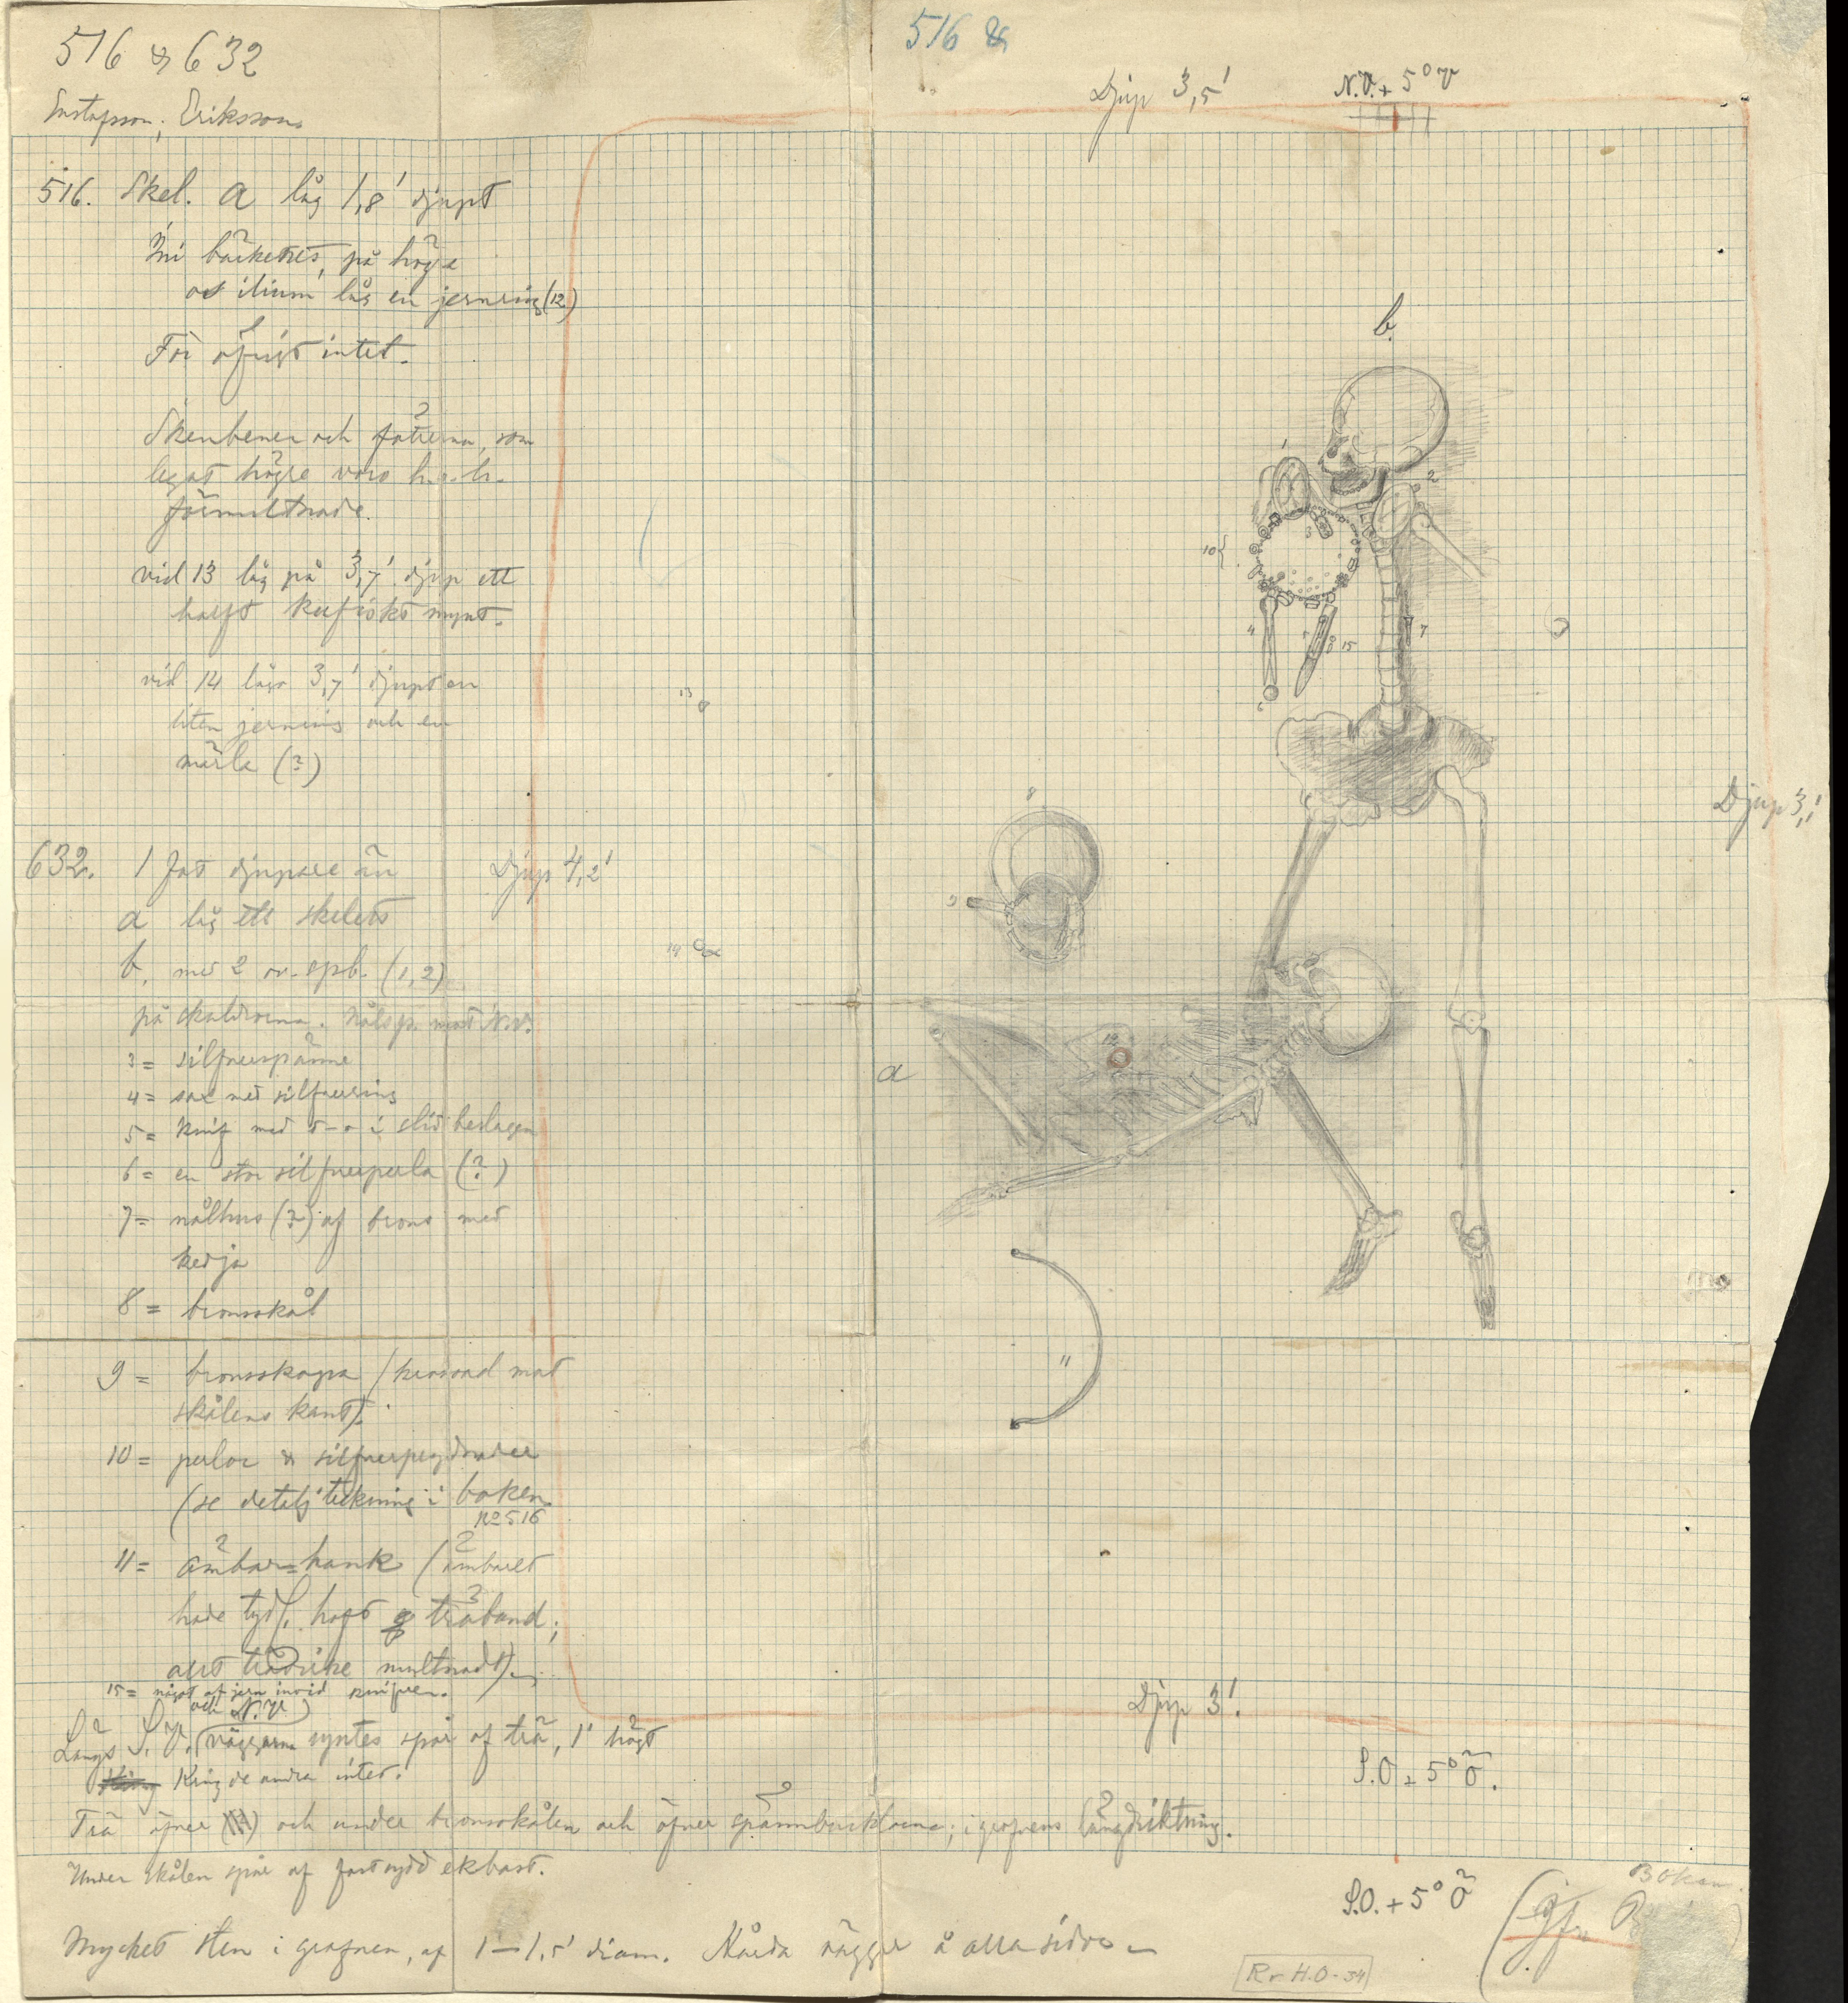 516 & 632
Gustafsson, Eriksson
516 &
Djup 3,5'
N.V. + 5° V
516. Skel. a låg 1,8' djupt
Ini bäckenet, på högra
os ilium låg en jernring (12)
För öfrigt intet.
Skenbenen och fötterna, som
legat högre voro h. o. h.
förmultnade.
vid 13 låg på 3,7' djup ett
halft kufiskt mynt.
vid 14 lågo 3,7' djupt en
liten jernring och en
märla (?)
632. 1 fot djupare än
a låg ett skelett
b, med 2 ov. spb. (1, 2)
på skuldrorna. Nålsp. mot N.V.
3 = silfverspänne
4 = sax med silfverring
5 = knif med
i slidbeslagen
6 = en stor silfverperla (?)
7 = nålhus (?) af brons med
kedja
8 = bronsskål
9 = bronsskopa (
mot
skålens kant).
10 = perlor & silfverprydnader
(se detaljteckning i boken
No 516
11 = ämbar=hank (ämbaret
hade tydl. haft 3 träband;
allt träd
multnadt).
15 = något af jern invid knifven.
och N.V.
Längs S.V. väggarna syntes spår af trä, 1' högt
Kring de andra intet.
Trä öfver och under bronsskålen och öfver spännbucklorna; i grafvens längdriktning.
Under skålen spår af fastsydd ekbast.
Mycket sten i grafven, af 1–1,5' diam. Hårda väggar å alla sidor –
Djup 4,2'
Djup 3,1'
Djup 3'.
S.O. + 5° Ö.
S.O. + 5° Ö
Boken.
Rr H.O - 34
b.
a
1
2
3
4
5
6
7
8
9
10 {
11
12
13
14
15